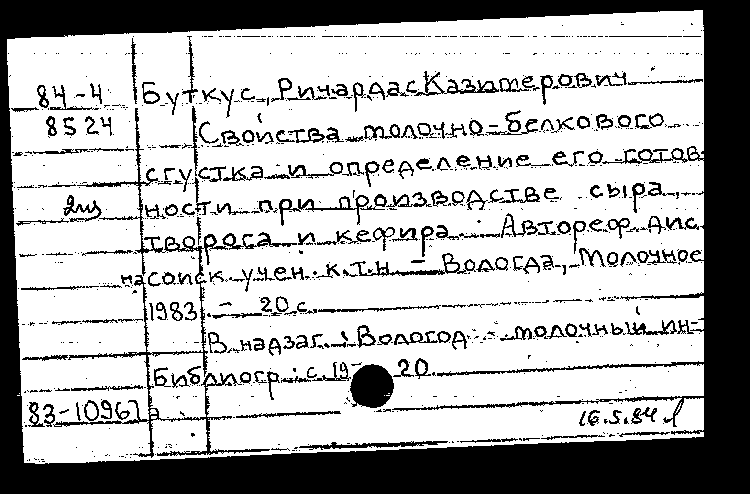 84-4 Буткус, Ричардас Казимерович
8524 Свойства молочно-белкового
сгустка и определение его готов-
2 из ности при производстве сыра,
творога и кефира : Автореф дис
на соиск учен. к.т.н - Вологда, Молочное
1983 - 20 с.
В надзаг. : Вологод - молочный ин-
Библиогр : с. 19 20
83-10967 а
16.5.84